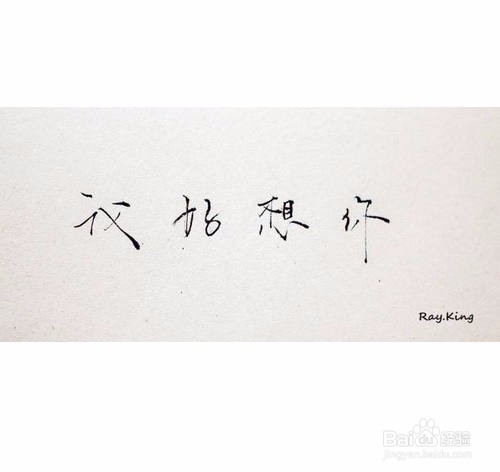 我好想你
Ray.King
Baidu经验
jingyan.baidu.com